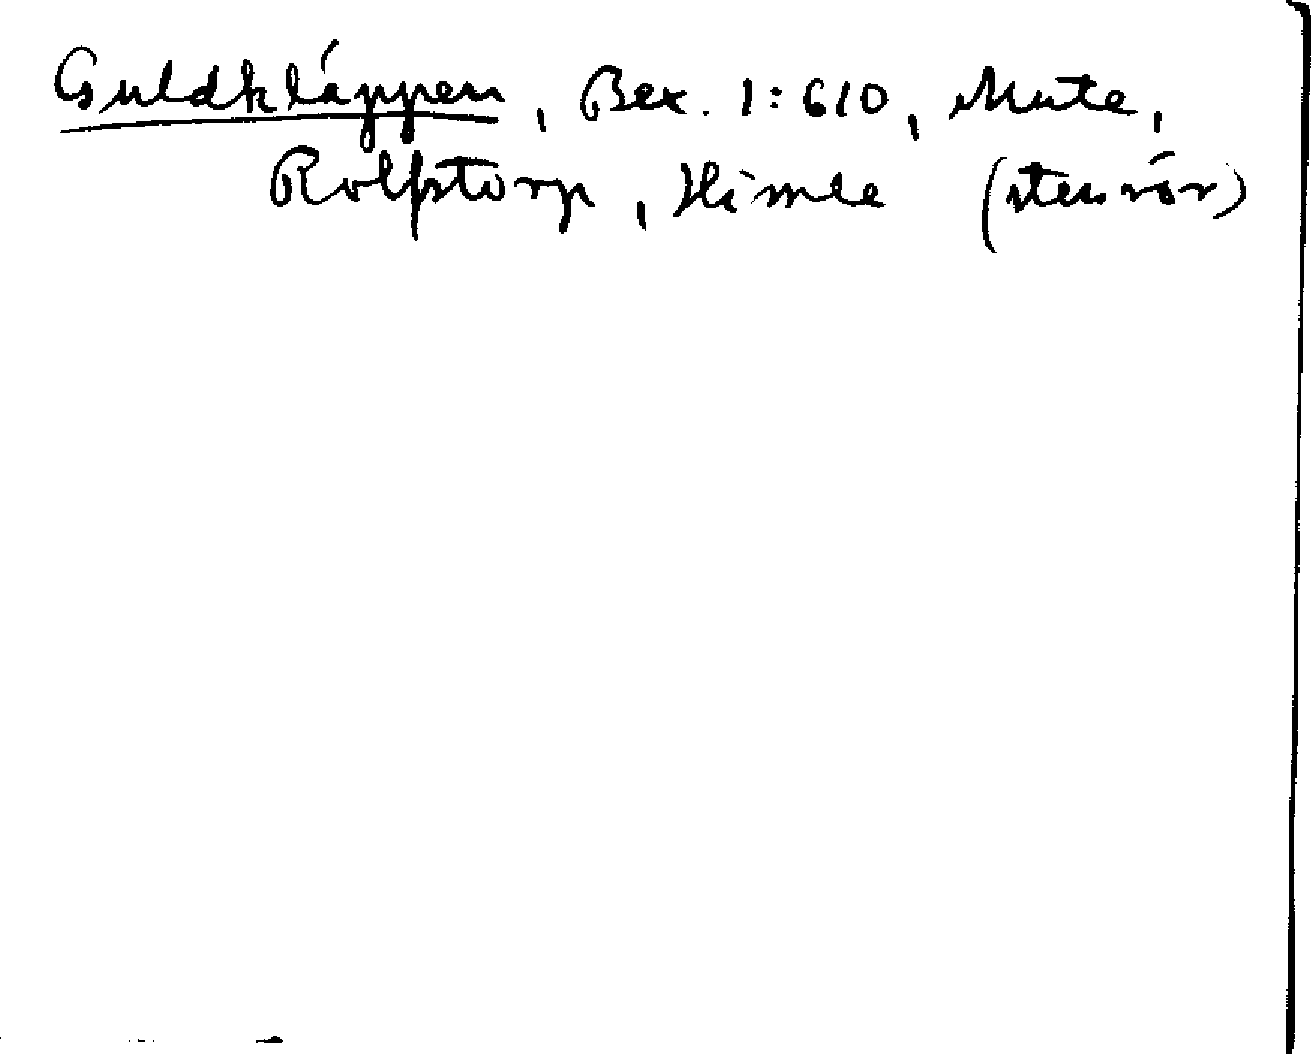 Guldkläppen, Bex. 1:610, Mute,
Rolfstorp, Himle (stenrör)